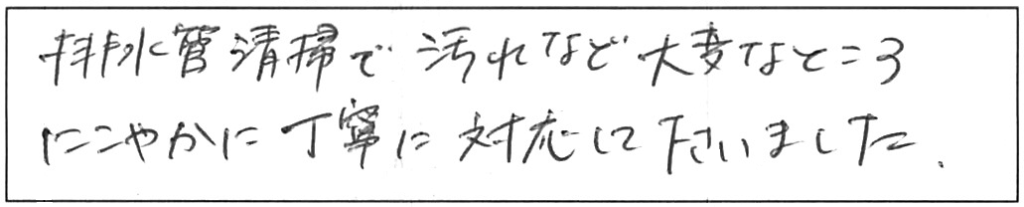 排水管清掃で汚れなど大変なところ
にこやかに丁寧に対応して下さいました.